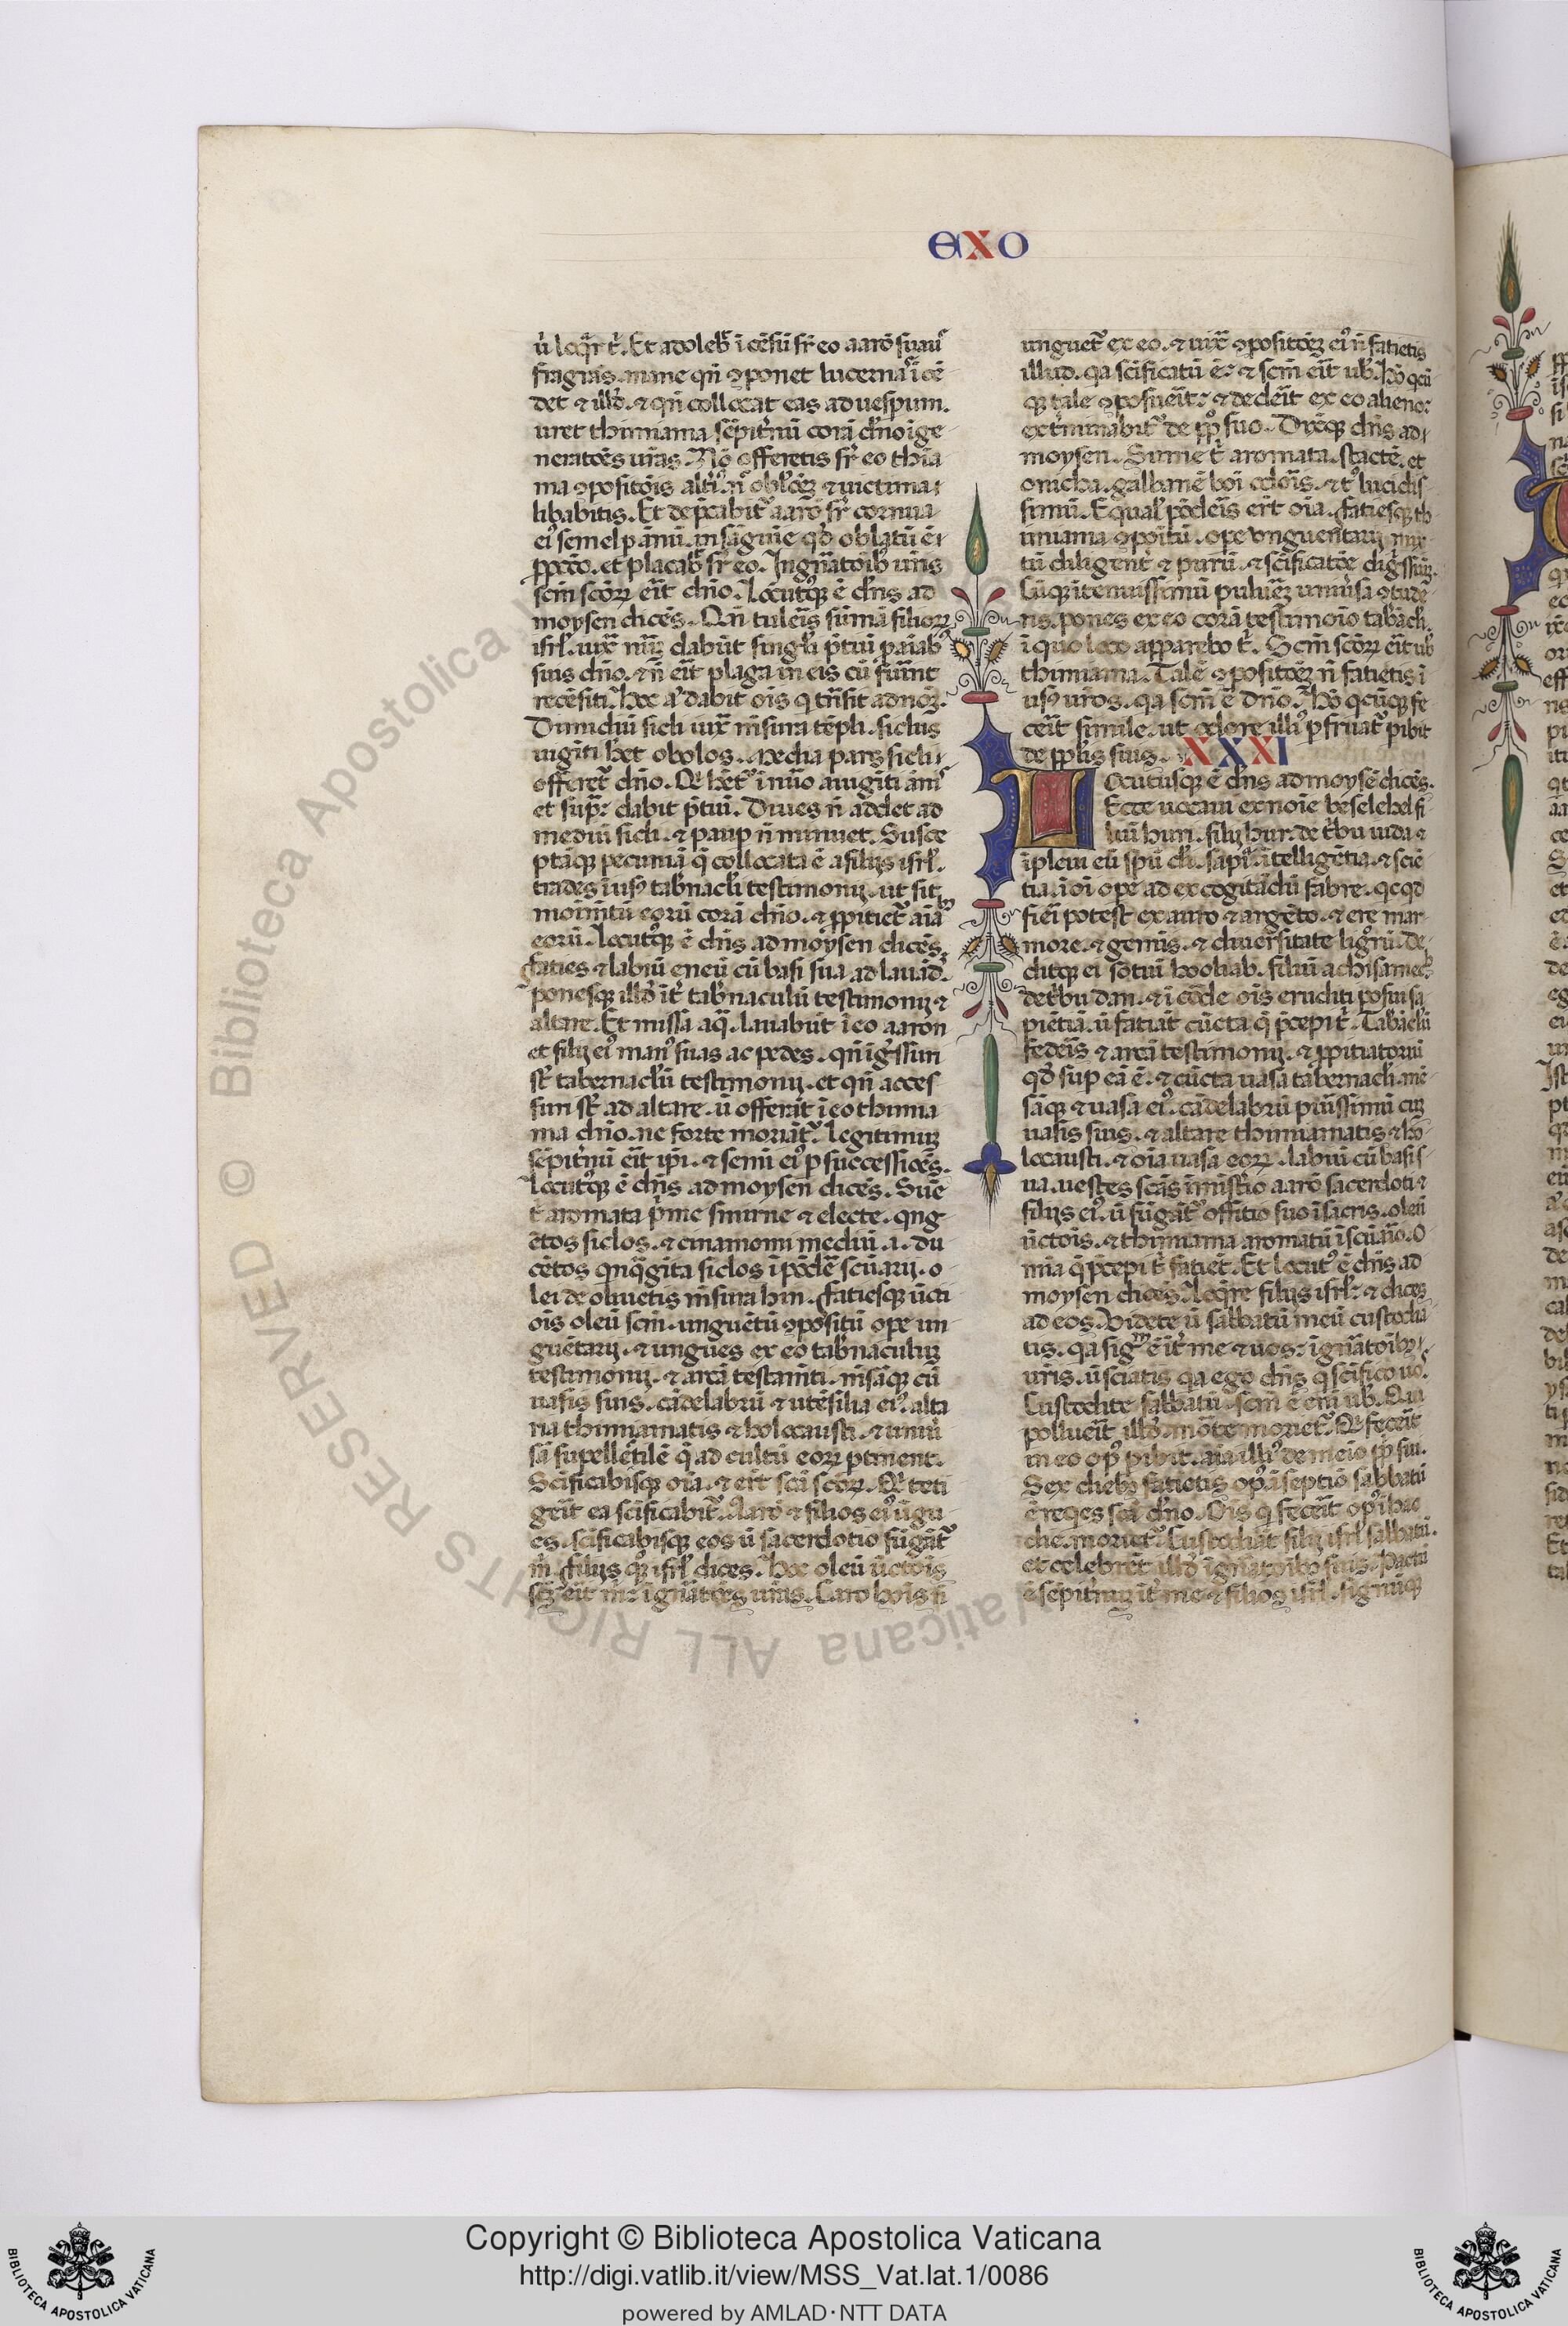 EXO
ũ loq̃r t̃. Et adoleb̃ ĩ cẽsũ sr̃ eo aarõ suaũ
fragrãs. mane qñ ꝯponet lucernas ĩ cẽ
det ⁊ illđ. ⁊ qñ collocat eas ad uesperum.
uret thimiama sẽpiťnũ corã dño ĩ ge
neratões ur̃as. Nõ offeretis sr̃ eo thia
ma ꝯpositõis alťiꝰ ñ obľõez ⁊ uictima
libabitis. Et dep̃cabiť aarõ sr̃ cornua
eiꝰ semel p ãnũ. in sãguĩe qđ oblatũ ẽ
p pctõ. et placab̃ sr̃ eo. In gñatõibꝫ ur̃is
scm̃ scõꝝ eĩt dño. Locutꝰqꝫ ẽ dñs ad
moysen dicẽs. Qñ tulels̃ sũmã filioꝝ
isrľ. iuxᵃ nũꝫ dabũt singľi p̃tiũ p aĩabꝫ
suis dño. ⁊ ñ eĩt plaga in eis cũ fũĩnt
recẽsiti. Hoc aꝰ dabit oĩs q trãsit ad noꝫ.
Dimidiũ sicli iuxᵃ m̃sura tẽpli. siclus
uigĩti h̃et obolos. Media pars sicli
offereť dño. Qi h̃eť ĩ nũo a uigĩti ãnis
et sup̃. dabit p̃tiũ. Diues ñ addet ad
mediũ sicli. ⁊ paup ñ minuet. Susce
ptãqꝫ pecuniã q̃ collocata ẽ a filijs isrľ.
trades ĩ usꝰ tab̃nacľi testimonij. ut sit
moĩm̃tũ eorũ corã dño. ⁊ p̃pitieť aĩabꝫ
eorũ. Locutꝰqꝫ ẽ dñs ad moysen dicẽs.
faties ⁊ labiũ eneũ cũ basi sua ad lauãđ.
ponesqꝫ illđ iť tab̃naculũ testimonij ⁊
altare. Et missã aq̃. lauabũt ĩ eo aaron
et filij eiꝰ manꝰ suas ac pedes. qñ ĩgr̃ssuri
sť tabernacľũ testimonij. et qñ acces
suri sť ad altare. ũ offerãt ĩ eo thimia
ma dño. ne forte moriãť. Legitimuꝫ
sẽpiťnũ eĩt ip̃i. ⁊ semĩ eiꝰ p successiões.
Locutꝰqꝫ ẽ dñs ad moysen dicẽs. Sũe
t̃ aromata p̃me smirne ⁊ electe. qing
ẽtos siclos. ⁊ cinamomi mediũ .i. du
cẽtos qnq̃gĩta siclos ĩ põdẽ scũarij. o
lei de oliuetis m̃sura hin. fatiesqꝫ ũcti
õis oleũ scm̃. unguẽtũ ꝯpositũ ope un
guẽtarij. ⁊ ungues ex eo tab̃naculuꝫ
testimonij. ⁊ arcã testam̃ti. m̃sãqꝫ cũ
uasis suis. cãdelabrũ ⁊ utẽsilia eiꝰ. alta
ria thimiamatis ⁊ holocausti. ⁊ uniũ
sã supellẽtilẽ q̃ ad cultũ eoꝝ ptinent.
Scĩficabisqꝫ oĩa. ⁊ erĩt scã scõꝝ. Qi teti
geĩt ea scĩficabiť. Aarõ ⁊ filios eiꝰ ũgu
es. scĩficabisqꝫ eos ũ sacerdotio fũgãť
m̃. filijs qꝫ isrľ dices. Hoc oleũ ũctõis
scꝫ eĩt m̃. ĩ gñatões ur̃as. Caro hoĩs ñ
ungueť ex eo. ⁊ iuxᵃ ꝯpositõez eiꝰ ñ fatietis
illud. qa scĩficatũ ẽ. ⁊ scm̃ eĩt uob̃. Hõ qcũ
qꝫ tale ꝯposueĩt. ⁊ dedeĩt ex eo alieno.
exťminabiť de pplo suo. Dixitqꝫ dñs ad
moysen. Sume t̃ aromata. stactẽ. et
onicha. galbanẽ boĩ odoĩs. ⁊ tꝰ lucidis
simũ. Equal̃ põdeĩs erĩt oĩa. fatiesqꝫ th
imiama ꝯpoĩtũ. ope unguentarij. mix
tũ diligenť ⁊ purũ. ⁊ scĩficatõe digr̃ssiũꝫ.
Cũqꝫ ĩ tenuissimũ puluẽꝫ uniũsa ꝯtude
ris. pones ex eo corã testimoĩo tab̃acľi.
ĩ quo loco apparebo t̃. Scm̃ scõꝝ eĩt ub̃
thimiama. Talẽ ꝯpositõez ñ fatietis ĩ
usꝰ ur̃os. qa scm̃ ẽ dño. Hõ qcũqꝫ fe
ceĩt simile. ut odore illiꝰ p fruaꝰ pibit
de pplis suis. XXXI
Locutusqꝫ ẽ dñs ad moysẽ dicẽs.
Ecce uocaui ex noĩe beselehel fi
liũ huri. filij hur. de tⁱbu iuda ⁊
ĩpleui eũ spũ dĩ. sapĩa. ĩtelligẽtia. ⁊ sciẽ
tia. ĩ oĩ ope ad excogitãdũ fabre. qcqd
fiei potest ex auro ⁊ argẽto. ⁊ ere. mar
more. ⁊ gemis. ⁊ diuersitate lignũ. de
ditqꝫ ei sotiũ hooliab. filiũ achisamech
de tⁱbu dan. ⁊ ĩ corde oĩs eruditi posui sa
piẽtiã. ũ fatiãt cũcta q̃ p̃cepi t̃. Tab̃acľũ
federis ⁊ arcã testimonij. ⁊ p̃pitiatoriũ
qđ sup eã ẽ. ⁊ cũcta uasa tabernacľi. mẽ
sãqꝫ ⁊ uasa eiꝰ. cãdelabrũ puĩssimũ cuꝫ
uasis suis. ⁊ altare thimiamatis ⁊ ho
locausti. ⁊ oĩa uasa eoꝝ. labiũ cũ basi s
ua. uestes scãs ĩ mĩistⁱio aarõ sacerdoti ⁊
filijs eiꝰ. ũ fũgãť offitio suo ĩ sacris. oleũ
ũctõis. ⁊ thimiama aromatũ ĩ scũaĩo. O
mĩa q̃ p̃cepi t̃ fatiet. Et locutꝰ ẽ dñs ad
moysen dicẽs. Loq̃re filijs isrľ. ⁊ dices
ad eos. Videte ũ sabbatũ meũ custodia
tis. qa sigᵐ ẽ iť me ⁊ uos. ĩ gñatõibꝫ
ur̃is. ũ sciatis qa ego dñs q scĩfico uos.
Custodite sabbatũ. scm̃ ẽ em̃ ub̃. Qui
pollueĩt illđ. morte morieť. Qi feceĩt
in eo opꝰ pibit. aĩa illiꝰ de meĩo ppľi sui.
Sex diebꝫ fatietis opꝰ. ĩ septĩo sabbatũ
ẽ reqes scã dño. Oĩs q feceĩt opꝰ ĩ hac
die. morieť. Custodiãt filij isrľ sabbatũ.
et celebrẽt illđ ĩ gñatoibꝫ suis. Pactũ
ẽ sẽpiťnuꝫ iť me ⁊ filios isrľ. signũqꝫ
Copyright © Biblioteca Apostolica Vaticana
http://digi.vatlib.it/view/MSS_Vat.lat.1/0086
powered by AMLAD·NTT DATA